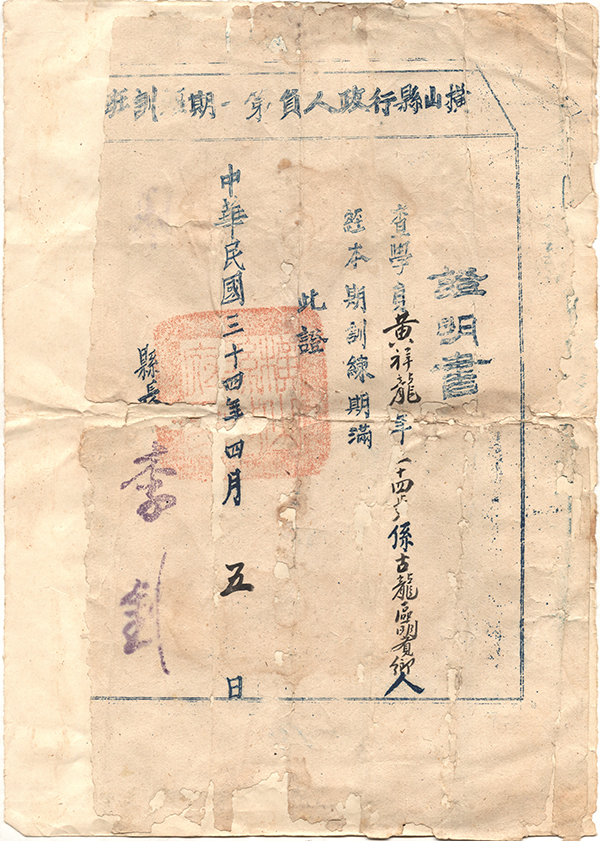 橫山縣行政人員第一期訓班
證明書
查學員黃祥龍年二十四歲係古龍區明覺鄉人
經本期訓練期滿
此證
中華民國三十四年四月五日
縣長 李